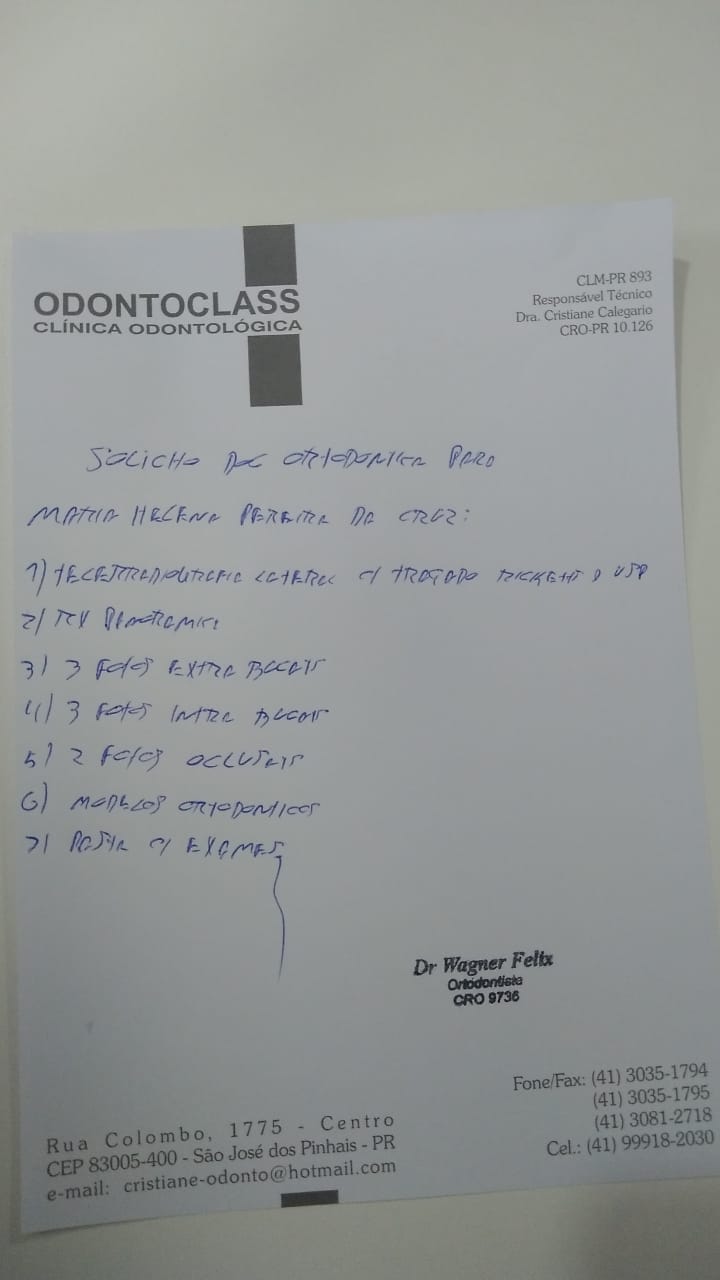 ODONTOCLASS
CLÍNICA ODONTOLÓGICA
CLM-PR 893
Responsável Técnico
Dra. Cristiane Calegario
CRO-PR 10.126
SOLICITO DOC ORTODONTICA PARA
MARIA HELENA PEREIRA DA CRUZ:
1) TELERRADIOGRAFIA LATERAL C/ TRAÇADO RICKETTS USP
2) PANORAMICA
3) 3 FOTOS EXTRA BUCAIS
4) 3 FOTOS INTRA BUCAIS
5) 2 FOTOS OCLUSAIS
6) MODELOS ORTODONTICOS
7) PASTA C/ EXAMES
Dr Wagner Felix
Ortodontista
CRO 9736
Rua Colombo, 1775 - Centro
CEP 83005-400 - São José dos Pinhais - PR
e-mail: cristiane-odonto@hotmail.com
Fone/Fax: (41) 3035-1794
(41) 3035-1795
(41) 3081-2718
Cel.: (41) 99918-2030